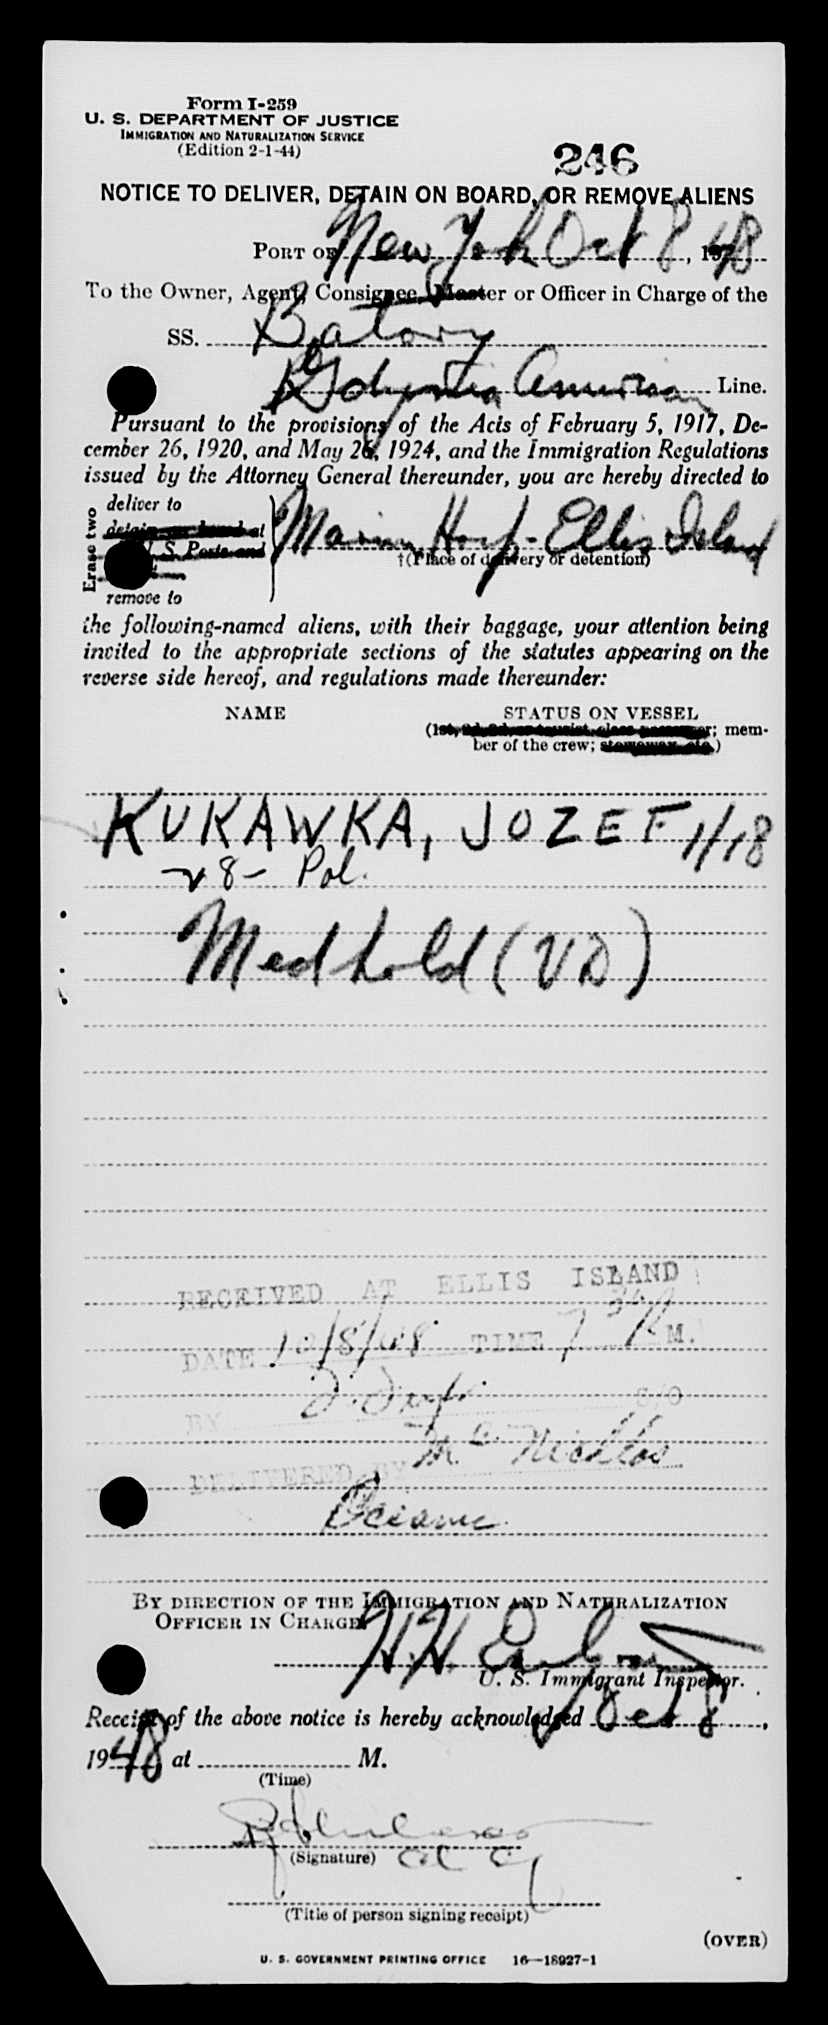 Form I-259
U. S. DEPARTMENT OF JUSTICE
IMMIGRATION AND NATURALIZATION SERVICE
(Edition 2-1-44)
246
NOTICE TO DELIVER, DETAIN ON BOARD, OR REMOVE ALIENS
PORT OF New York Oct 8, 1948
To the Owner, Agent, Consignee, Master or Officer in Charge of the
SS. Batory
Gdynia American Line.
Pursuant to the provisions of the Acts of February 5, 1917, De-
cember 26, 1920, and May 26, 1924, and the Immigration Regulations
issued by the Attorney General thereunder, you are hereby directed to
Erase two
deliver to
detain on board at
U. S. Ports and
remove to
Marine Hosp - Ellis Island
†(Place of delivery or detention)
the following-named aliens, with their baggage, your attention being
invited to the appropriate sections of the statutes appearing on the
reverse side hereof, and regulations made thereunder:
NAME STATUS ON VESSEL
(1st, 2d, 3d, or tourist class passenger; mem-
ber of the crew; stowaway, etc.)
KUKAWKA, JOZEF 1/18
28- Pol.
Med hold (VD)
RECEIVED AT ELLIS ISLAND
DATE 10/8/48 TIME 7 30 P M.
BY S/O
DELIVERED BY Mc
Oceanic
BY DIRECTION OF THE IMMIGRATION AND NATURALIZATION
OFFICER IN CHARGE
H. H.
U. S. Immigrant Inspector.
Receipt of the above notice is hereby acknowledged Oct 8,
1948 at M.
(Time)
(Signature)
(Title of person signing receipt)
(OVER)
U. S. GOVERNMENT PRINTING OFFICE 16—18927-1